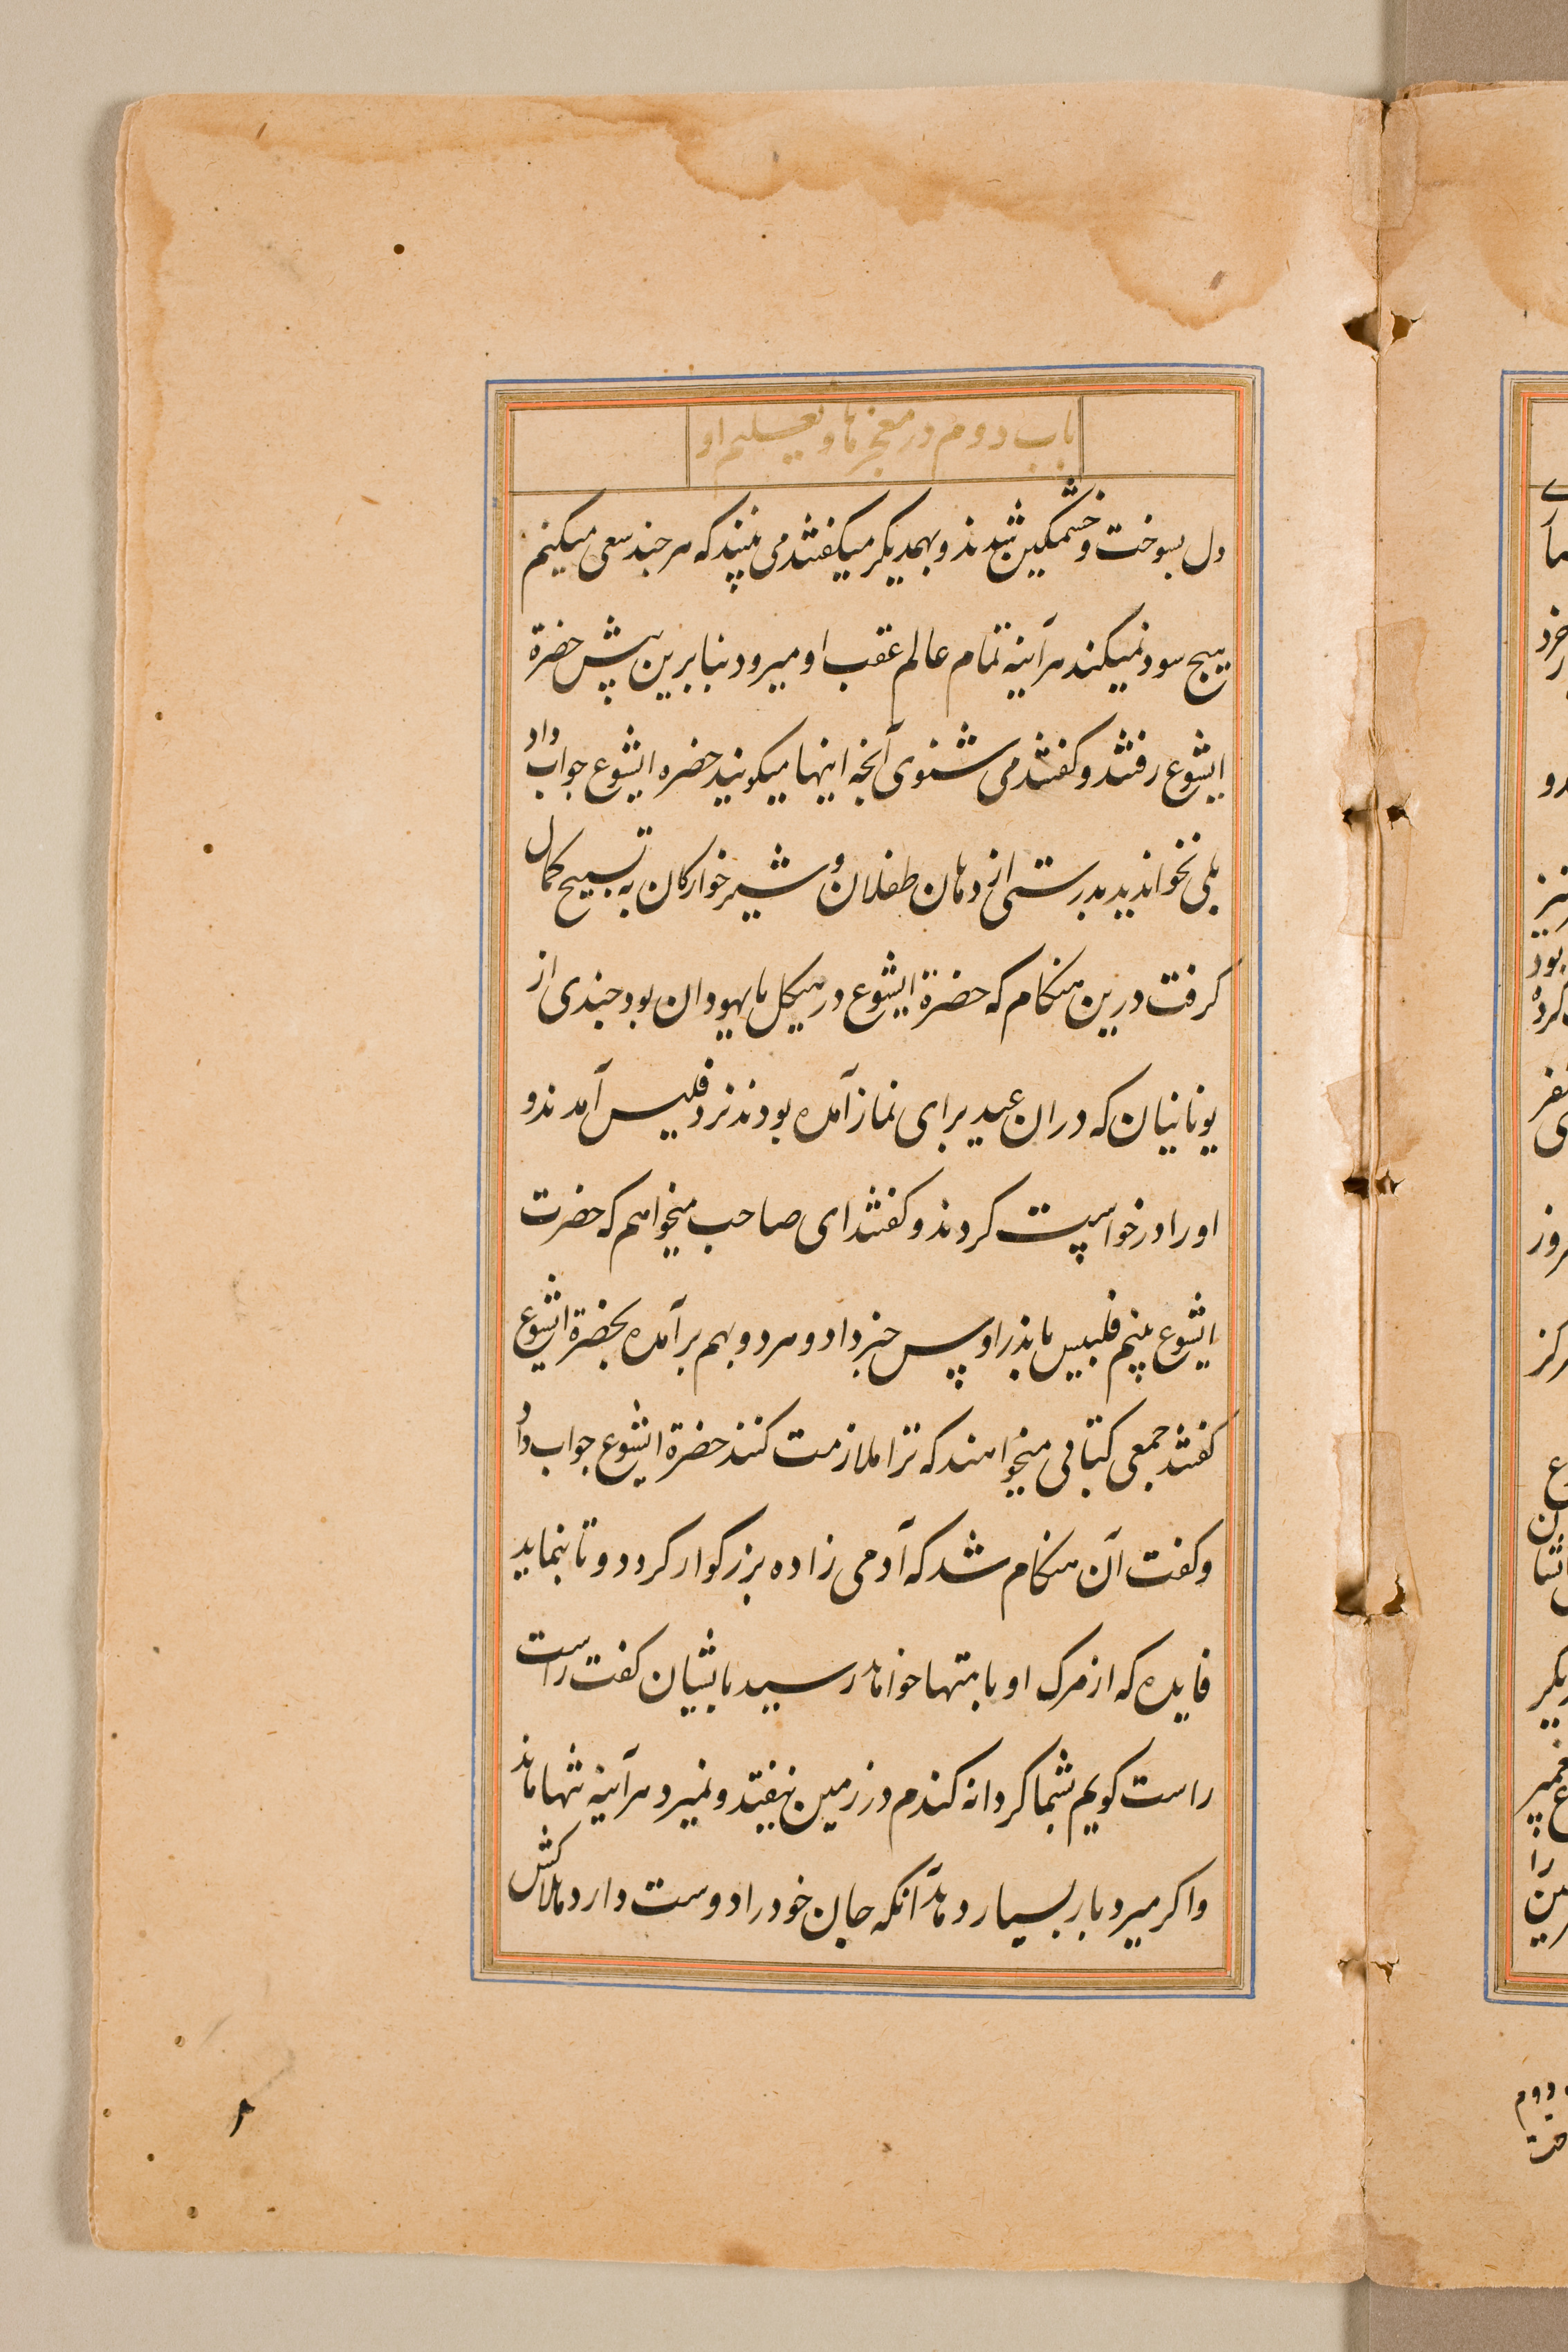 باب دوم در معجزها و تعلیم او
دل بسوخت و خشمگین شدند و بهمدیکر میکفتند می بینید که هر چند سعی میکنیم
هیچ سود نمیکند هر آینه تمام عالم عقب او میرود بنا برین پیش حضرة
ایشوع رفتند و کفتند می شنوی آنچه اینها میکویند حضره ایشوع جواب داد
بلی نخواندید بدرستی از دهان طفلان و شیر خوارکان به تسبیح کمال
کرفت درین هنکام که حضرة ایشوع در هیکل با یهودان بود چندی از
یونانیان که دران عید برای نماز آمده بودند نزد فلیس آمدند و
او را درخواست کردند و کفتند ای صاحب میخواهم که حضرت
ایشوع بینم فلیس باندراوس خبر داد و هر دو بهم بر آمده بحضرة ایشوع
کفتند جمعی کتابی میخواهند که ترا ملازمت کنند حضرة ایشوع جواب داد
و کفت آن هنکام شد که آدمی زاده بزرکوار کردد و تا بنماید
فایده که از مرک او بامتها خواهد رسید بایشان کفت راست
راست کویم بشما کر دانه کندم در زمین نیفتد و نمیرد هر آینه تنها ماند
و اکر میرد بار بسیار دهد آنکه جان خود را دوست دارد هلاکش